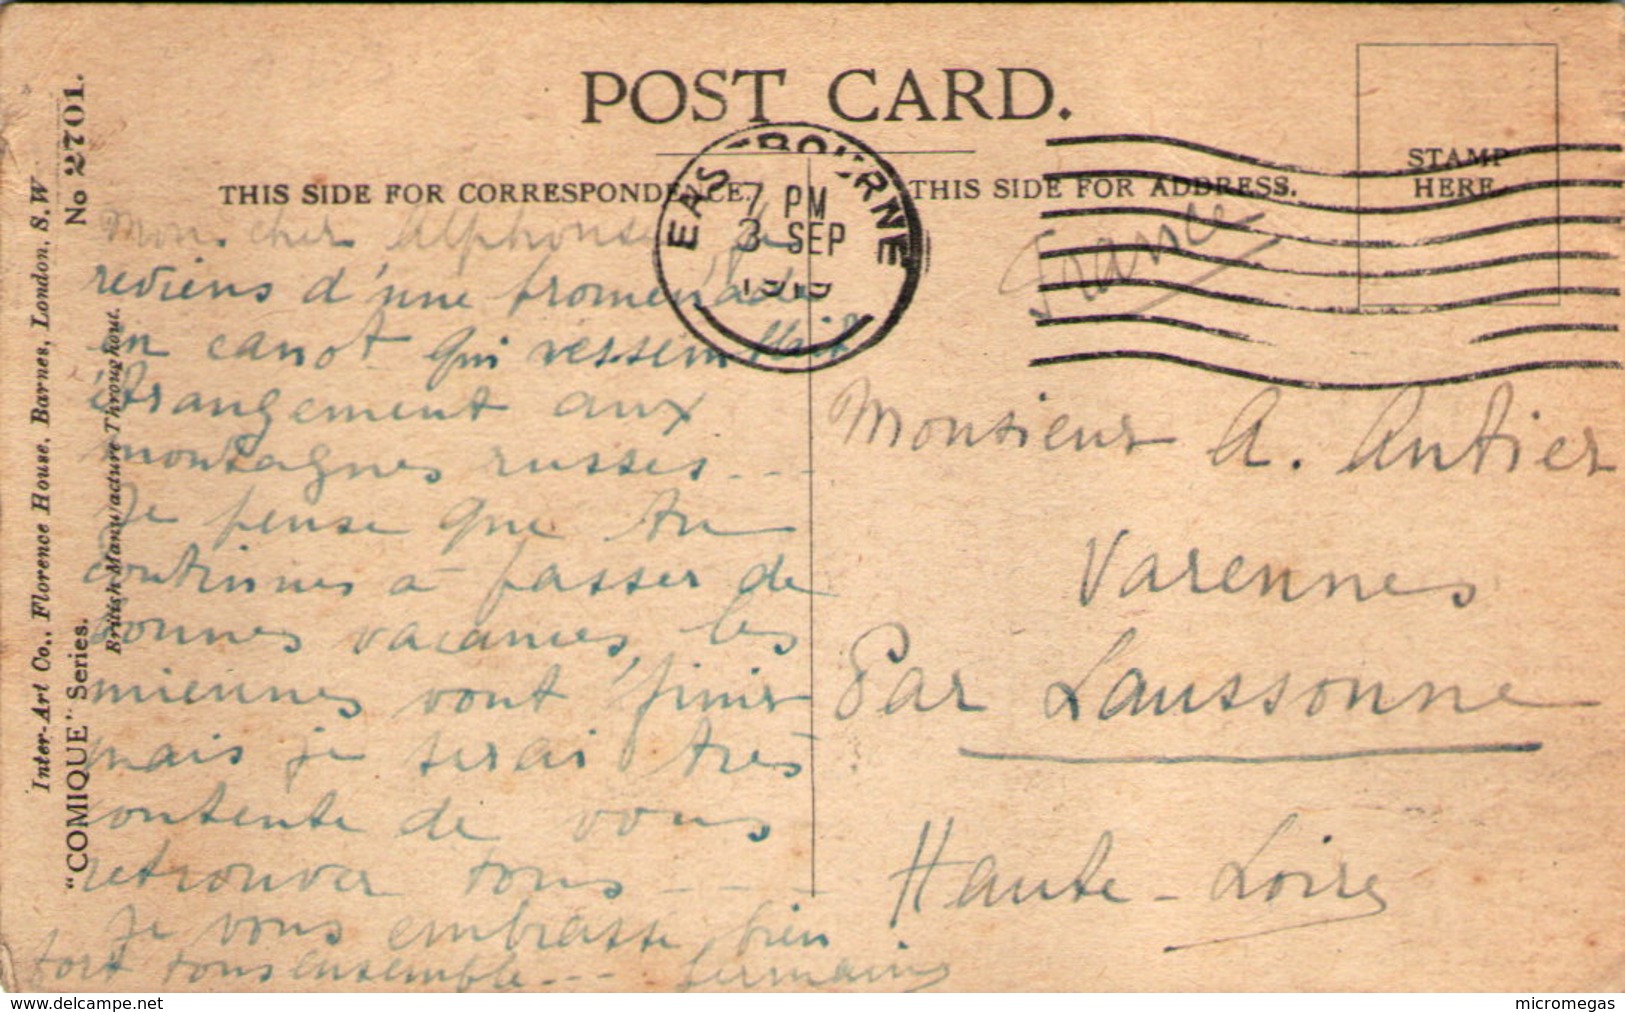 POST CARD.
THIS SIDE FOR CORRESPONDENCE.
THIS SIDE FOR ADDRESS.
STAMP
HERE.
EASTBOURNE
7 PM
3 SEP
Inter-Art Co., Florence House, Barnes, London, S.W
"COMIQUE" Series.
No 2701.
British Manufacture Throughout.
Mon cher Alphonse, je
reviens d'une promenade
en canot qui ressemblait
étrangement aux
montagnes russes...
Je pense que tu
continues à passer de
bonnes vacances, les
miennes vont finir
mais je serai très
contente de vous
retrouver tous - - -
Je vous embrasse bien
fort tous ensemble - - - Germaine
France
Monsieur A. Antier
Varennes
Par Laussonne
Haute-Loire
www.delcampe.net
micromegas